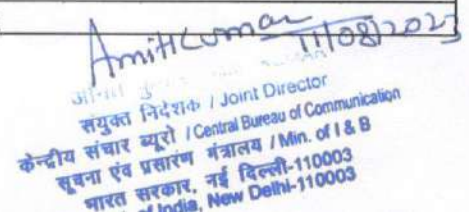 Amit Kumar
11/08/2023
संयुक्त निदेशक / Joint Director
केन्द्रीय संचार ब्यूरो / Central Bureau of Communication
सूचना एंव प्रसारण मंत्रालय / Min. of I & B
भारत सरकार, नई दिल्ली-110003
of India, New Delhi-110003